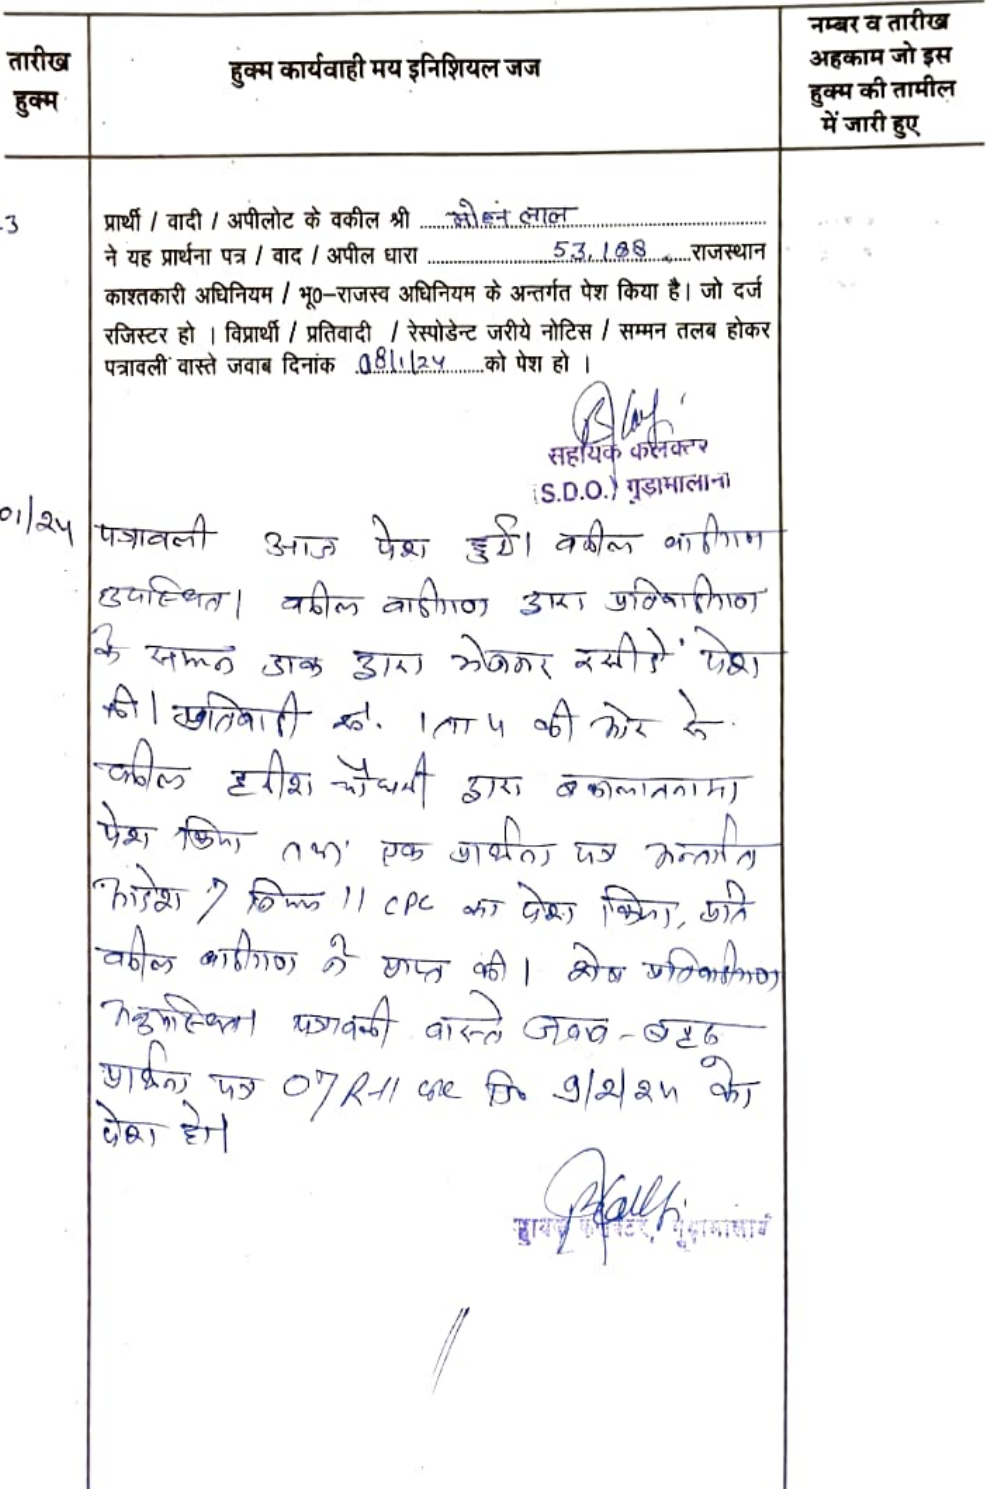 तारीख
हुक्म
हुक्म कार्यवाही मय इनिशियल जज
नम्बर व तारीख
अहकाम जो इस
हुक्म की तामील
में जारी हुए
प्रार्थी / वादी / अपीलोट के वकील श्री मोहन लाल
ने यह प्रार्थना पत्र / वाद / अपील धारा 53,188 राजस्थान
काश्तकारी अधिनियम / भू०-राजस्व अधिनियम के अन्तर्गत पेश किया है। जो दर्ज
रजिस्टर हो । विप्रार्थी / प्रतिवादी / रेस्पोडेन्ट जरीये नोटिस / सम्मन तलब होकर
पत्रावली वास्ते जवाब दिनांक 08/1/24 को पेश हो ।
सहायक कलेक्टर
(S.D.O.) गुडामालानी
01/24 पत्रावली आज पेश हुई। वकील वादीगण
उपस्थित। वकील वादीगण द्वारा प्रतिवादीगण
के सम्मन डाक द्वारा भेजकर रसीदें पेश
की। प्रतिवादी सं. 1 ता 4 की ओर से
वकील हरीश चौधरी द्वारा वकालतनामा
पेश किया तथा एक प्रार्थना पत्र अन्तर्गत
आदेश 7 नियम 11 CPC का पेश किया, प्रति
वकील वादीगण ने प्राप्त की। शेष प्रतिवादीगण
अनुपस्थित। पत्रावली वास्ते जवाब - बहस
प्रार्थना पत्र 07 R-11 CPC दि 9/2/24 को
पेश हो।
सहायक कलेक्टर, गुडामालानी